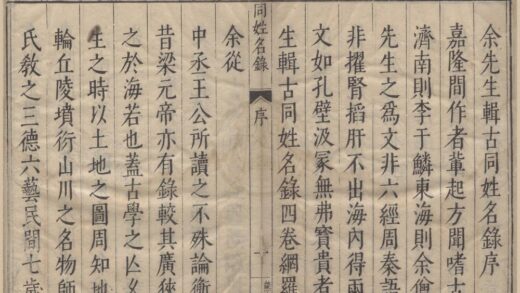 余先生輯古同姓名錄序
嘉隆間作者輩起方聞嗜古
濟南則李于鱗東海則余
先生之爲文非六經周秦語
非擢腎搯肝不出海內得兩
文如孔壁汲冢無弗寶貴者
生輯古同姓名錄四卷網羅
同姓名錄 序 一
余從
中丞王公所讀之不殊論衡
昔梁元帝亦有錄較其廣狹
之於海若也蓋古學之亾
生之時以土地之圖周知地
輪丘陵墳衍山川之名物師
氏敎之三德六藝民間七歲